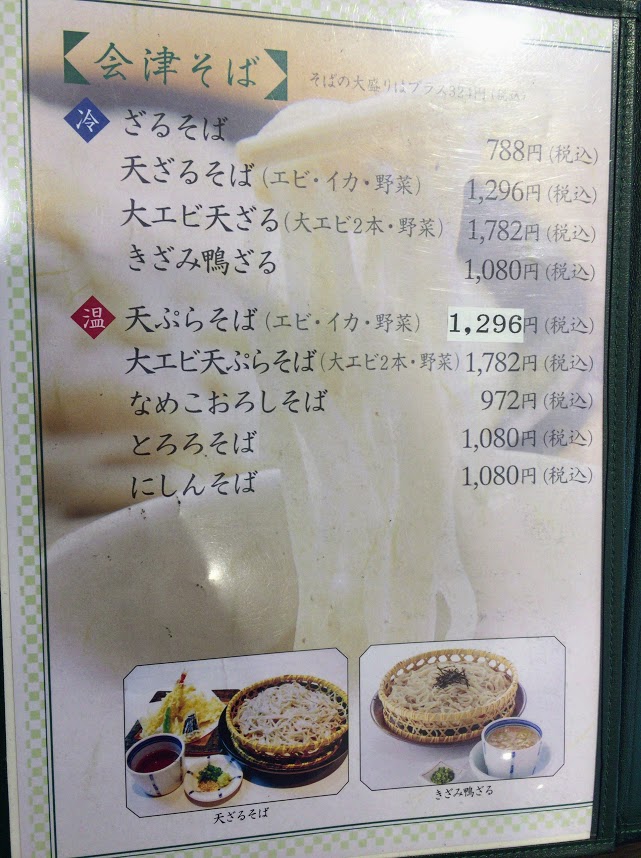 【会津そば】 そばの大盛りはプラス324円(税込)
冷 ざるそば 788円(税込)
天ざるそば(エビ・イカ・野菜) 1,296円(税込)
大エビ天ざる(大エビ2本・野菜) 1,782円(税込)
きざみ鴨ざる 1,080円(税込)
温 天ぷらそば(エビ・イカ・野菜) 1,296円(税込)
大エビ天ぷらそば(大エビ2本・野菜) 1,782円(税込)
なめこおろしそば 972円(税込)
とろろそば 1,080円(税込)
にしんそば 1,080円(税込)
天ざるそば
きざみ鴨ざる